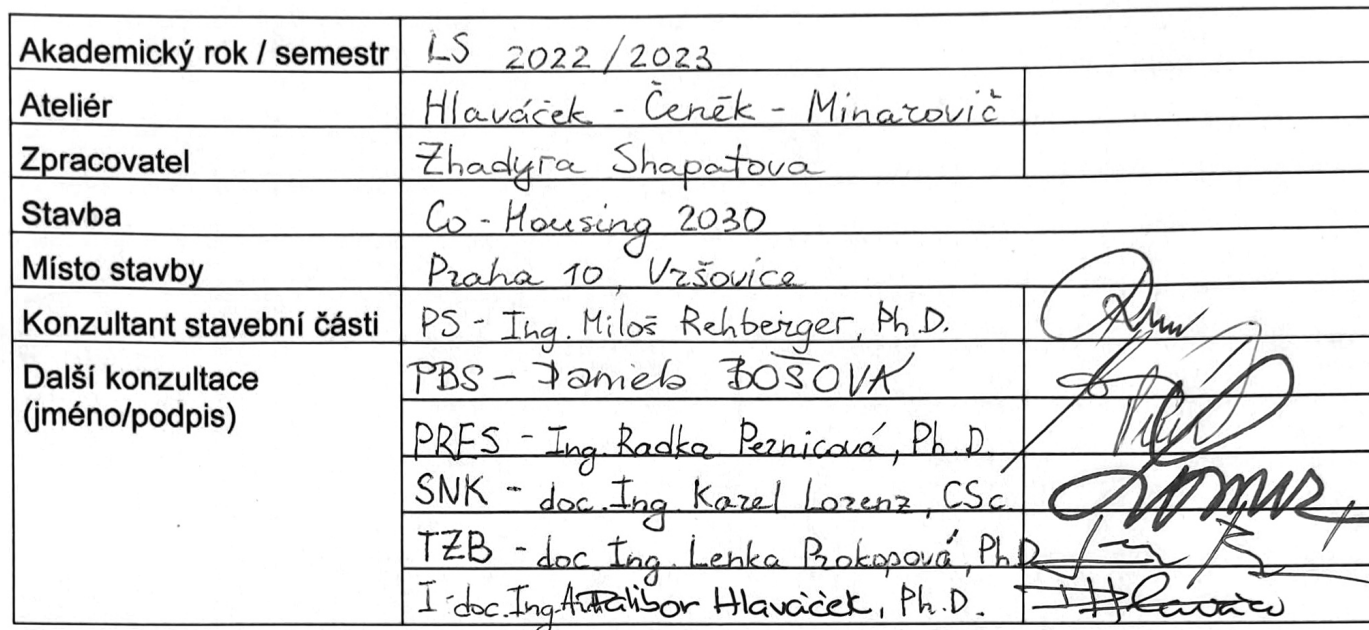 Akademický rok / semestr LS 2022/2023
Ateliér Hlaváček - Čeněk - Minarovič
Zpracovatel Zhadyra Shapatova
Stavba Co-Housing 2030
Místo stavby Praha 10, Vršovice
Konzultant stavební části PS - Ing. Miloš Rehberger, Ph.D.
Další konzultace PBS - Daniela BOŠOVÁ
(jméno/podpis) PRES - Ing. Radka Pernicová, Ph.D.
SNK - doc. Ing. Karel Lorenz, CSc.
TZB - doc. Ing. Lenka Prokopová, Ph.D
I - doc. Ing. Dalibor Hlaváček, Ph.D.